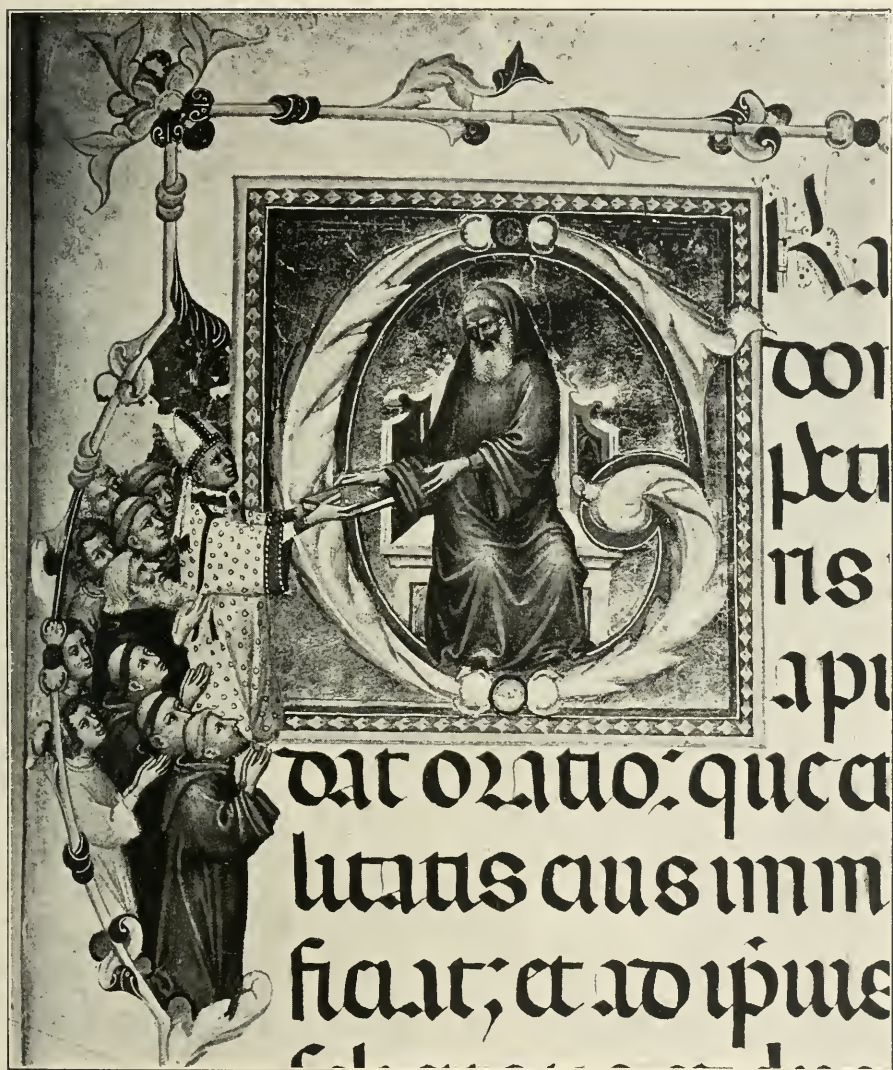 GRa
dor
peti
ris
apu
dat oratio: que et
litatis eius imm
ficiat; et ad ip̄ius